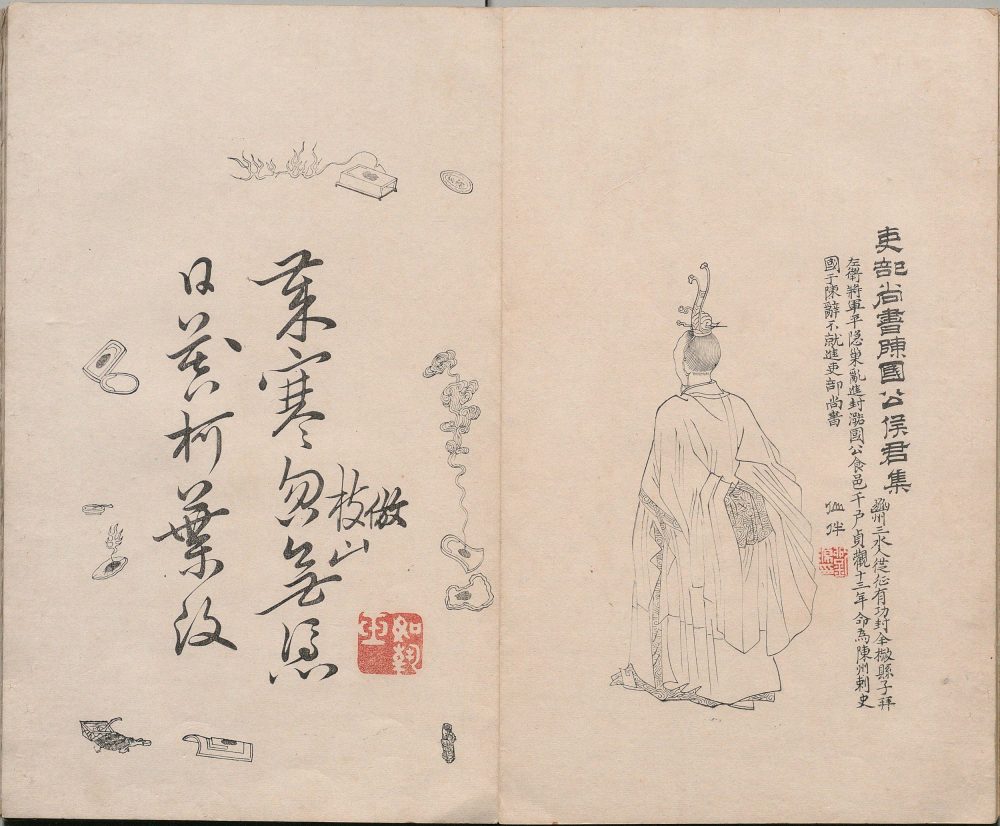 吏部尚書陳國公侯君集
豳州三水人從征有功封全椒縣子拜
左衛將軍平隐巢亂進封潞國公食邑千戶貞觀十三年命為陳州刺史
國于陳辭不就進吏部尚書
歲寒忽無憑
日夜柯葉改
倣枝山